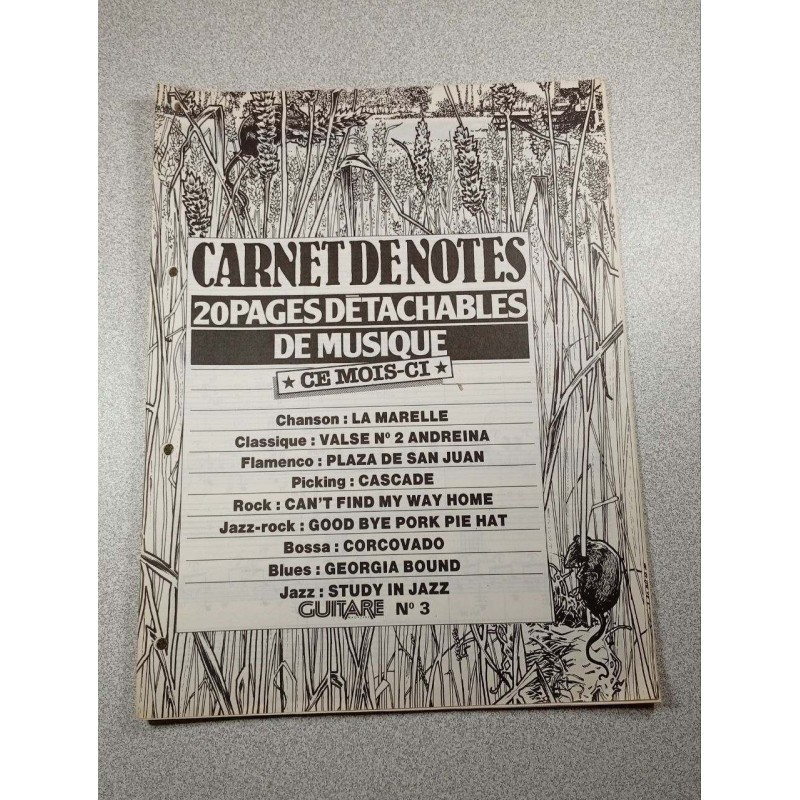 CARNET DE NOTES
20 PAGES DÉTACHABLES
DE MUSIQUE
★ CE MOIS-CI ★
Chanson : LA MARELLE
Classique : VALSE Nº 2 ANDREINA
Flamenco : PLAZA DE SAN JUAN
Picking : CASCADE
Rock : CAN'T FIND MY WAY HOME
Jazz-rock : GOOD BYE PORK PIE HAT
Bossa : CORCOVADO
Blues : GEORGIA BOUND
Jazz : STUDY IN JAZZ
GUITARE Nº 3